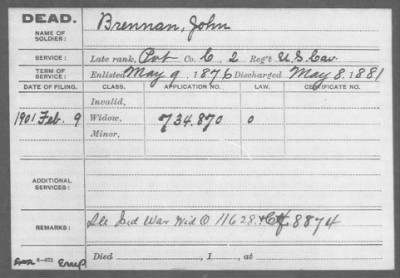 DEAD.
NAME OF SOLDIER: Brennan, John
SERVICE: Late rank, Pvt Co. C, 2 Reg't U.S. Cav.
TERM OF SERVICE: Enlisted May 9, 1876 Discharged May 8, 1881
DATE OF FILING. CLASS. APPLICATION NO. LAW. CERTIFICATE NO.
Invalid,
1901 Feb. 9 Widow, 734.870 0
Minor,
ADDITIONAL SERVICES:
REMARKS: See Ind War Wid O 11628. & Ctf. 8874
Died , 1 , at